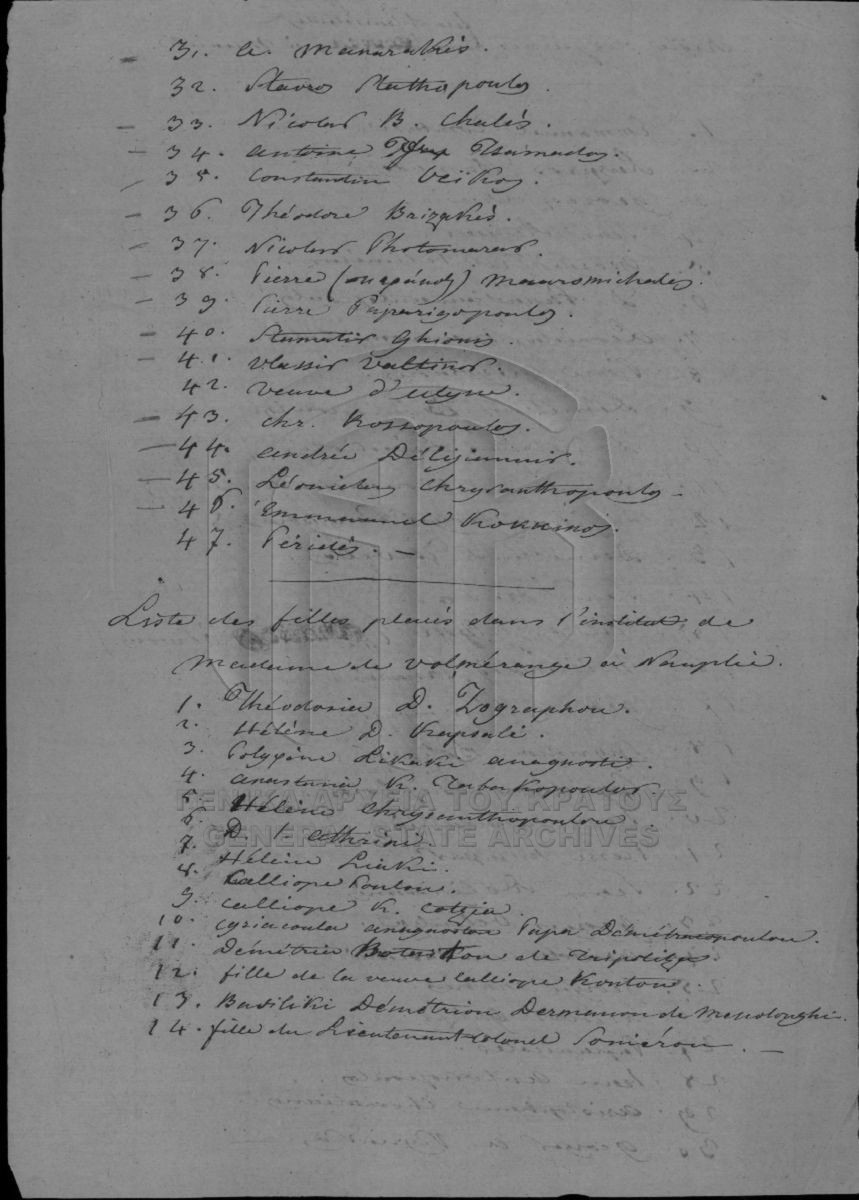 31. A. Manarakis.
32. Stavros Stathopoulos.
33. Nicolas B. Chalès.
34. Antoine Tsamados.
35. Constantin Veïkos.
36. Théodore Brizakès.
37. Nicolas Photomaras.
38. Pierre Mauromichales.
39. Pierre Paparigopoulos.
40. Stamatis Ghionis.
41. Vlassis Valtinos.
42. Veuve d'Ulysse.
43. Chr. Rossopoulos.
44. André Déligiannis.
45. Léonidas Chrysanthopoulos
46. Emmanuel Kokkinos.
47. Féridès. —
Liste des filles placés dans l'institut de
Madame de Volmérange à Nauplie.
1. Théodosia D. Zographou.
2. Hélène D. Kapsali.
3. Polyxène Likaki Anagnosti.
4. Anastasia K. Tabakopoulos.
ΓΕΝΙΚΑ ΑΡΧΕΙΑ ΤΟΥ ΚΡΑΤΟΥΣ
5. Hélène Chrysanthopoulou.
GENERAL STATE ARCHIVES
6. D. Cathrini.
7. Hélène
8. Calliope
9. Calliope K.
10. Cyriacoula Anagnostou Papa Démétracopoulou.
11. Démétria de Tripolitza
12. fille de la veuve Calliope Kontou.
13. Basiliki Démétriou Dermanou de Messolonghi.
14. fille du Lieutenant Colonel